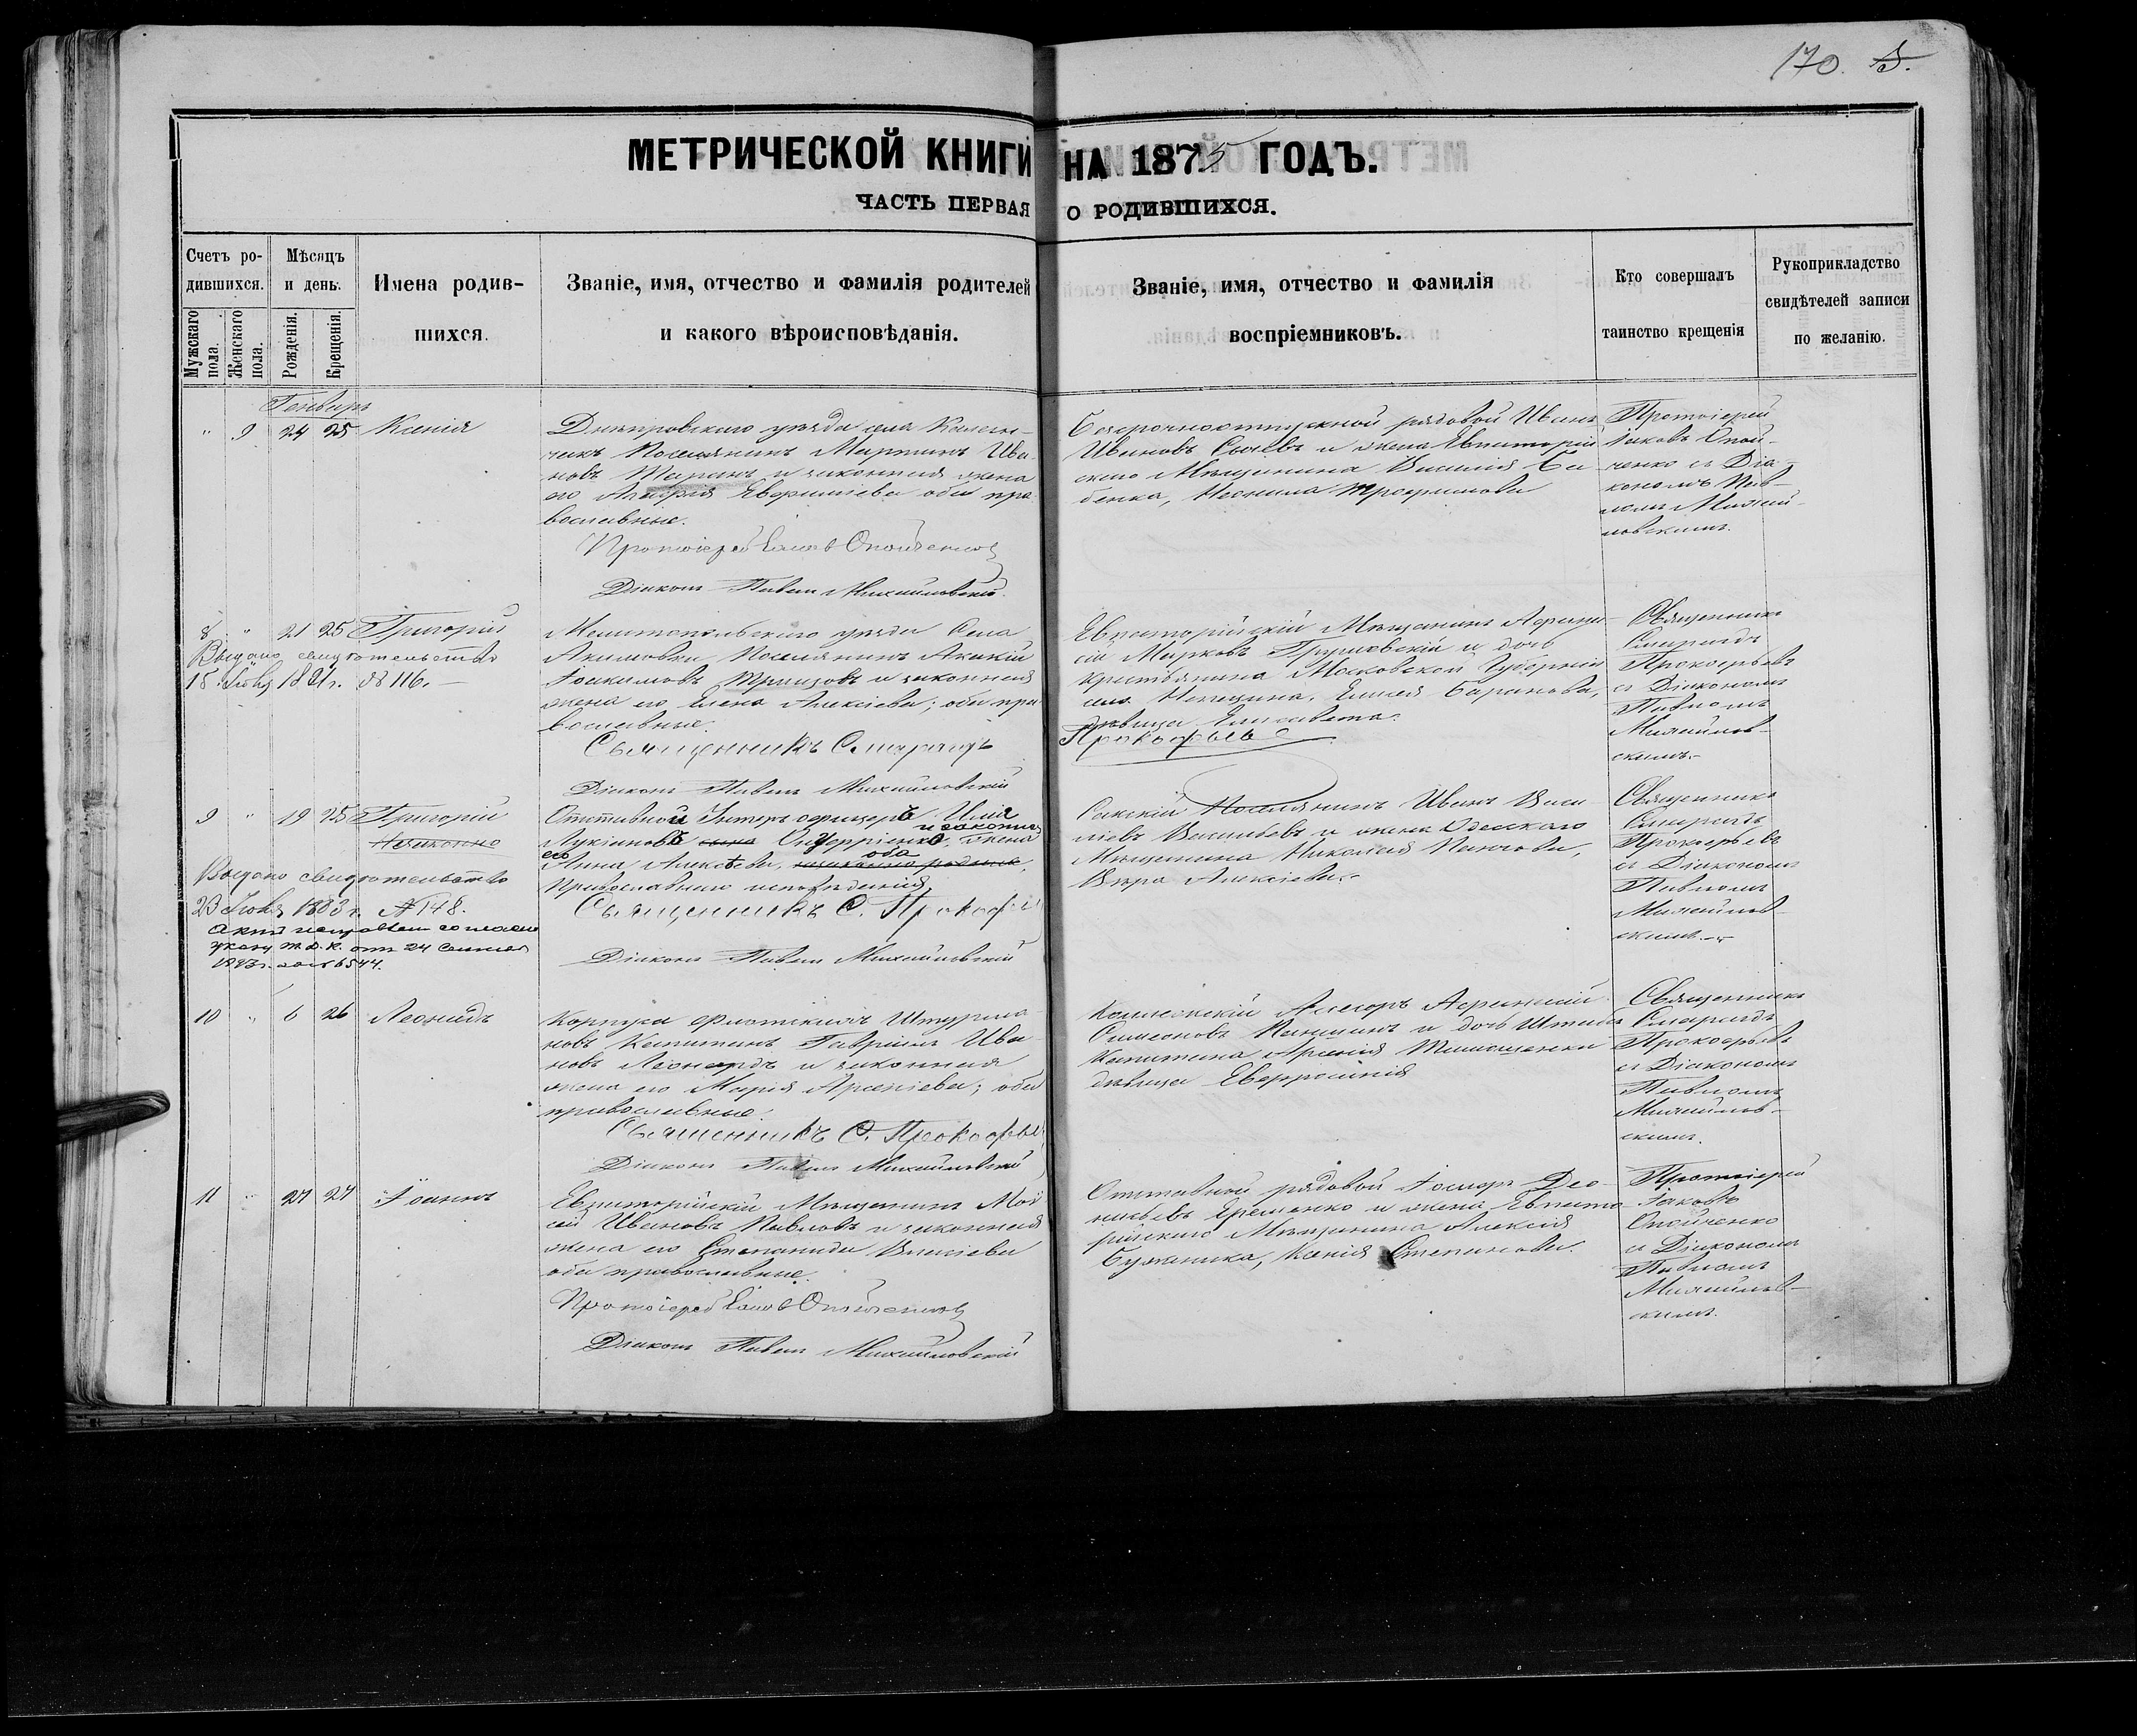 170. 5.
МЕТРИЧЕСКОЙ КНИГИ НА 1875 ГОДЪ.
ЧАСТЬ ПЕРВАЯ О РОДИВШИХСЯ.
Счетъ ро-
дившихся.
Мужскаго пола.
Женскаго пола.
Мѣсяцъ
и день.
Рожденія.
Крещенія.
Имена родив-
шихся.
Званіе, имя, отчество и фамилія родителей
и какого вѣроисповѣданія.
Званіе, имя, отчество и фамилія
воспріемниковъ.
Кто совершалъ
таинство крещенія
Рукоприкладство
свидѣтелей записи
по желанію.
Генваръ
" 9 24 25 Ксенія
Днѣпровскаго уѣзда села Каланч-
чакъ Поселянинъ Мартинъ Ива-
новъ Таранъ и законная жена
его Агафія Евфиміева оба пра-
вославные.
Протоіерей Іаковъ Опойченко
Діаконъ Павелъ Михайловскій
Безсрочноотпускной рядовой Иванъ
Ивановъ и жена Евпаторій-
скаго Мѣщанина Василія Ба-
денка, Неонила Трофимова
Протоіерей
Іаковъ Опой-
ченко съ Діа-
кономъ Пав-
ломъ Михай-
ловскимъ.
8 " 21 25 Григорій
Выдано свидѣтельство
15 1881 г. № 116.
Мелитопольскаго уѣзда Села
Акимовки Поселянинъ Акакій
Іоакимовъ и законная
жена его Елена Алексіева; оба пра-
вославные.
Священникъ Смарагдъ
Прокофьевъ
Діаконъ Павелъ Михайловскій
Евпаторійскій Мѣщанинъ Афана-
сій Марковъ и дочь
крестьянина Московской Губерніи
села Баранова,
дѣвица Елисавета.
Священникъ
Смарагдъ
Прокофьевъ
съ Діакономъ
Павломъ
Михайлов-
скимъ.-
9 " 19 25 Григорій
Незаконно
Выдано свидѣтельство
23 1883 г. № 148.
Актъ исправленъ согласно
указу Т. Д. К. отъ 24
1883 г. за № 6544.
Отставной Унтеръ офицеръ Илія
и законная
Лукіановъ жена
его оба
Анна Алексѣева, незаконно
Православнаго исповѣданія
Священникъ С. Прокофьевъ
Діаконъ Павелъ Михайловскій
Сакскій Поселянинъ Иванъ Васи-
ліевъ Васильевъ и жена Одесскаго
Мѣщанина Николая
Вѣра Алексіева.-
Священникъ
Смарагдъ
Прокофьевъ
съ Діакономъ
Павломъ
Михайлов-
скимъ.-
10 " 6 26 Леонидъ
Корпуса Флотскихъ Штурма-
новъ Капитанъ Гавріилъ Ива-
новъ Леонардъ и законная
жена его Марія Арсеніева; оба
православные.
Священникъ С. Прокофьевъ
Діаконъ Павелъ Михайловскій
Коллежскій Ассесоръ Афанасій
Симеоновъ и дочь Штабсъ
Капитана Арсенія Тимошенки
дѣвица Евфросинія
Священникъ
Смарагдъ
Прокофьевъ
съ Діакономъ
Павломъ
Михайлов-
скимъ.
11 " 27 27 Іоаннъ
Евпаторійскій Мѣщанинъ Мой-
сей Ивановъ Павловъ и законная
жена его Степанида Василіева
оба православные.
Протоіерей Іаковъ Опойченко
Діаконъ Павелъ Михайловскій
Отставной рядовой Іосифъ Део-
нисьевъ Еременко и жена Евпато-
рійскаго Мѣщанина Алексія
Ксенія Степанова.
Протоіерей
Іаковъ
Опойченко
съ Діакономъ
Павломъ
Михайлов-
скимъ.